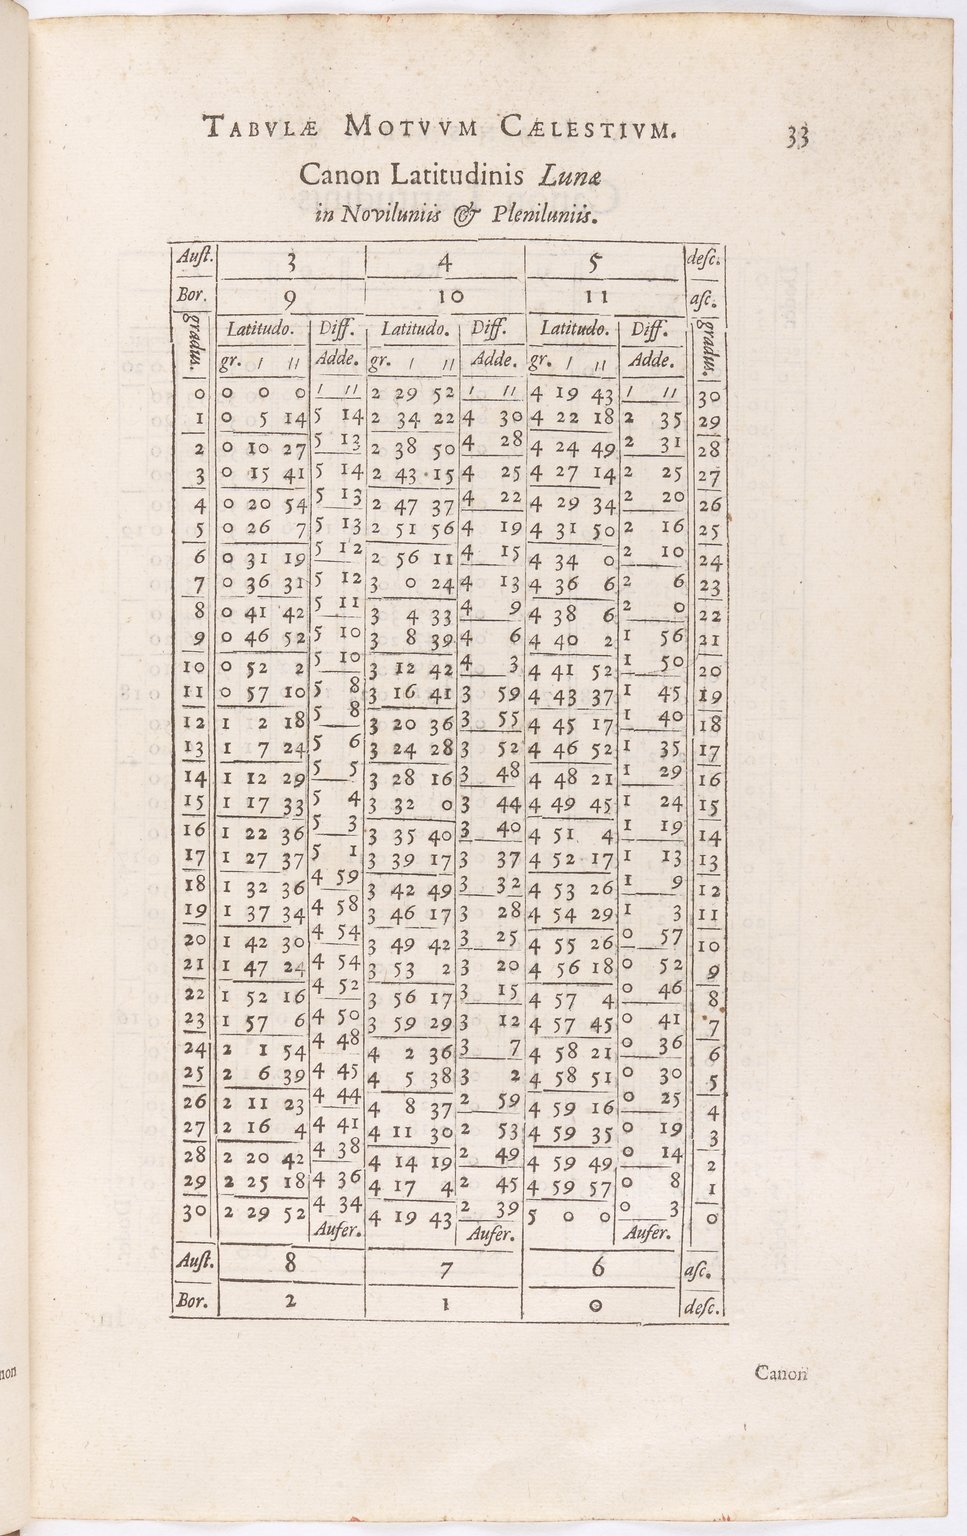 TABVLÆ MOTVVM CÆLESTIVM. 33
Canon Latitudinis Lunæ
in Noviluniis & Pleniluniis.
Auſt. 3 4 5 deſc.
Bor. 9 10 11 aſc.
gradus. Latitudo. Diff. Latitudo. Diff. Latitudo. Diff. gradus.
gr. ′ ″ Adde. gr. ′ ″ Adde. gr. ′ ″ Adde.
0 0 0 0 ′ ″ 2 29 52 ′ ″ 4 19 43 ′ ″ 30
1 0 5 14 5 14 2 34 22 4 30 4 22 18 2 35 29
2 0 10 27 5 13 2 38 50 4 28 4 24 49 2 31 28
3 0 15 41 5 14 2 43 15 4 25 4 27 14 2 25 27
4 0 20 54 5 13 2 47 37 4 22 4 29 34 2 20 26
5 0 26 7 5 13 2 51 56 4 19 4 31 50 2 16 25
6 0 31 19 5 12 2 56 11 4 15 4 34 0 2 10 24
7 0 36 31 5 12 3 0 24 4 13 4 36 6 2 6 23
8 0 41 42 5 11 3 4 33 4 9 4 38 6 2 0 22
9 0 46 52 5 10 3 8 39 4 6 4 40 2 1 56 21
10 0 52 2 5 10 3 12 42 4 3 4 41 52 1 50 20
11 0 57 10 5 8 3 16 41 3 59 4 43 37 1 45 19
12 1 2 18 5 8 3 20 36 3 55 4 45 17 1 40 18
13 1 7 24 5 6 3 24 28 3 52 4 46 52 1 35 17
14 1 12 29 5 5 3 28 16 3 48 4 48 21 1 29 16
15 1 17 33 5 4 3 32 0 3 44 4 49 45 1 24 15
16 1 22 36 5 3 3 35 40 3 40 4 51 4 1 19 14
17 1 27 37 5 1 3 39 17 3 37 4 52 17 1 13 13
18 1 32 36 4 59 3 42 49 3 32 4 53 26 1 9 12
19 1 37 34 4 58 3 46 17 3 28 4 54 29 1 3 11
20 1 42 30 4 54 3 49 42 3 25 4 55 26 0 57 10
21 1 47 24 4 54 3 53 2 3 20 4 56 18 0 52 9
22 1 52 16 4 52 3 56 17 3 15 4 57 4 0 46 8
23 1 57 6 4 50 3 59 29 3 12 4 57 45 0 41 7
24 2 1 54 4 48 4 2 36 3 7 4 58 21 0 36 6
25 2 6 39 4 45 4 5 38 3 2 4 58 51 0 30 5
26 2 11 23 4 44 4 8 37 2 59 4 59 16 0 25 4
27 2 16 4 4 41 4 11 30 2 53 4 59 35 0 19 3
28 2 20 42 4 38 4 14 19 2 49 4 59 49 0 14 2
29 2 25 18 4 36 4 17 4 2 45 4 59 57 0 8 1
30 2 29 52 4 34 4 19 43 2 39 5 0 0 0 3 0
Aufer. Aufer. Aufer.
Auſt. 8 7 6 aſc.
Bor. 2 1 0 deſc.
Canon